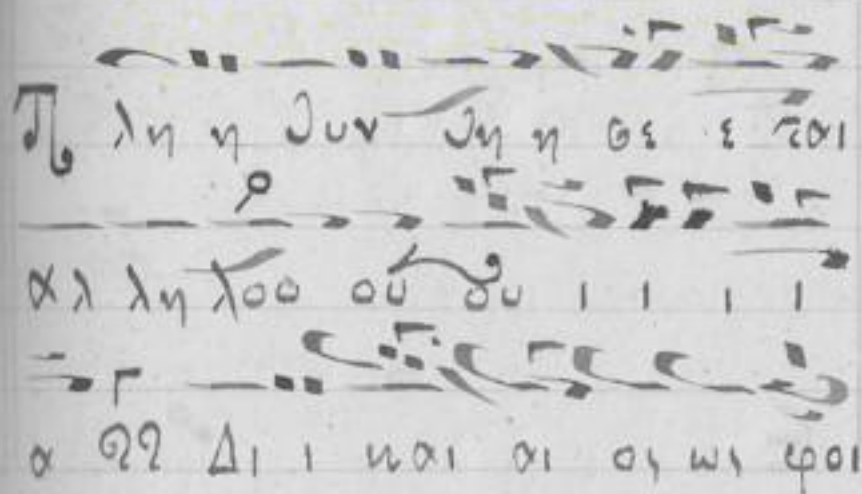 Π λη η θυν θη η σε ε ται
αλ λη λου ου ου ι ι ι ι
α Δι ι και αι ος ως φοι